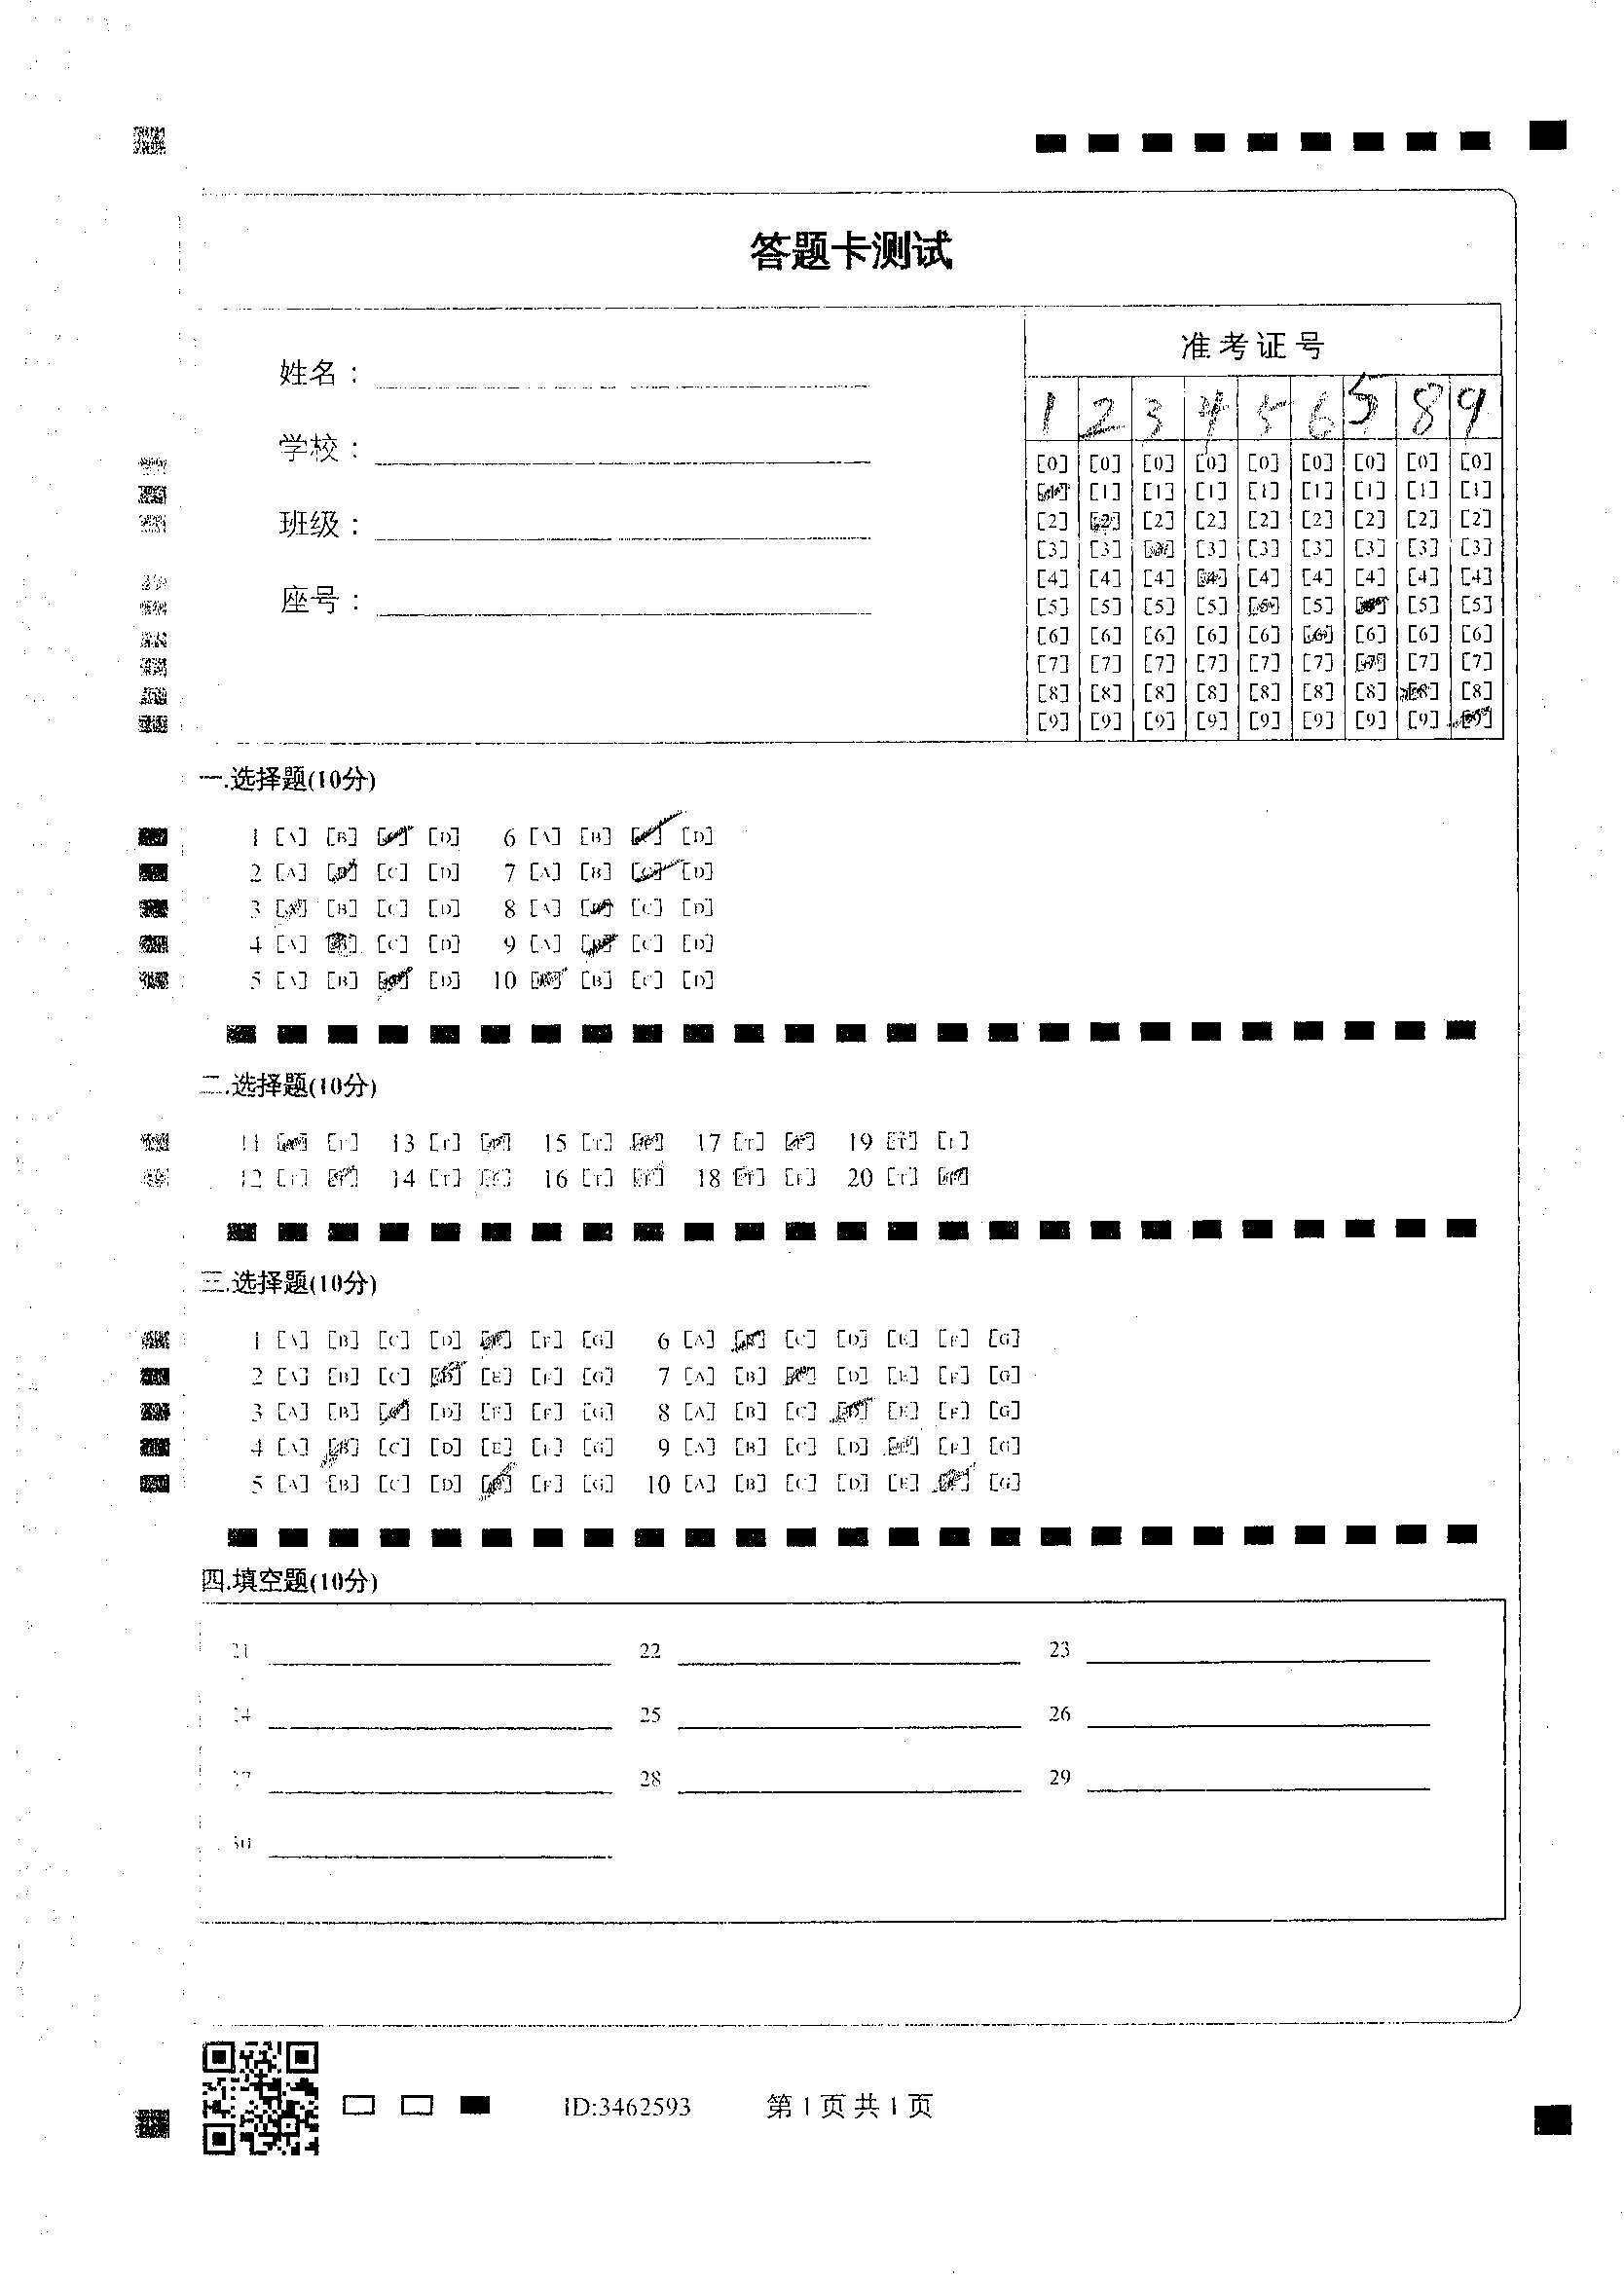 答题卡测试
准考证号
姓名：
学校：
班级：
座号：
1 2 3 4 5 6 5 8 9
[0] [0] [0] [0] [0] [0] [0] [0] [0]
[1] [1] [1] [1] [1] [1] [1] [1]
[2] [2] [2] [2] [2] [2] [2] [2] [2]
[3] [3] [3] [3] [3] [3] [3] [3]
[4] [4] [4] [4] [4] [4] [4] [4] [4]
[5] [5] [5] [5] [5] [5] [5] [5]
[6] [6] [6] [6] [6] [6] [6] [6] [6]
[7] [7] [7] [7] [7] [7] [7] [7] [7]
[8] [8] [8] [8] [8] [8] [8] [8] [8]
[9] [9] [9] [9] [9] [9] [9] [9] [9]
一.选择题(10分)
1 [A] [B] [D] 6 [A] [B] [D]
2 [A] [C] [D] 7 [A] [B] [D]
3 [B] [C] [D] 8 [A] [C] [D]
4 [A] [B] [C] [D] 9 [A] [C] [D]
5 [A] [B] [D] 10 [B] [C] [D]
二.选择题(10分)
11 [F] 13 [T] 15 [T] 17 [T] 19 [T] [F]
12 [T] [F] 14 [T] [F] 16 [T] [F] 18 [T] [F] 20 [T]
三.选择题(10分)
1 [A] [B] [C] [D] [F] [G] 6 [A] [C] [D] [E] [F] [G]
2 [A] [B] [C] [D] [E] [F] [G] 7 [A] [B] [D] [E] [F] [G]
3 [A] [B] [D] [E] [F] [G] 8 [A] [B] [C] [D] [E] [F] [G]
4 [A] [B] [C] [D] [E] [F] [G] 9 [A] [B] [C] [D] [F] [G]
5 [A] [B] [C] [D] [F] [G] 10 [A] [B] [C] [D] [E] [F] [G]
四.填空题(10分)
21 22 23
24 25 26
27 28 29
30
ID:3462593 第1页共1页